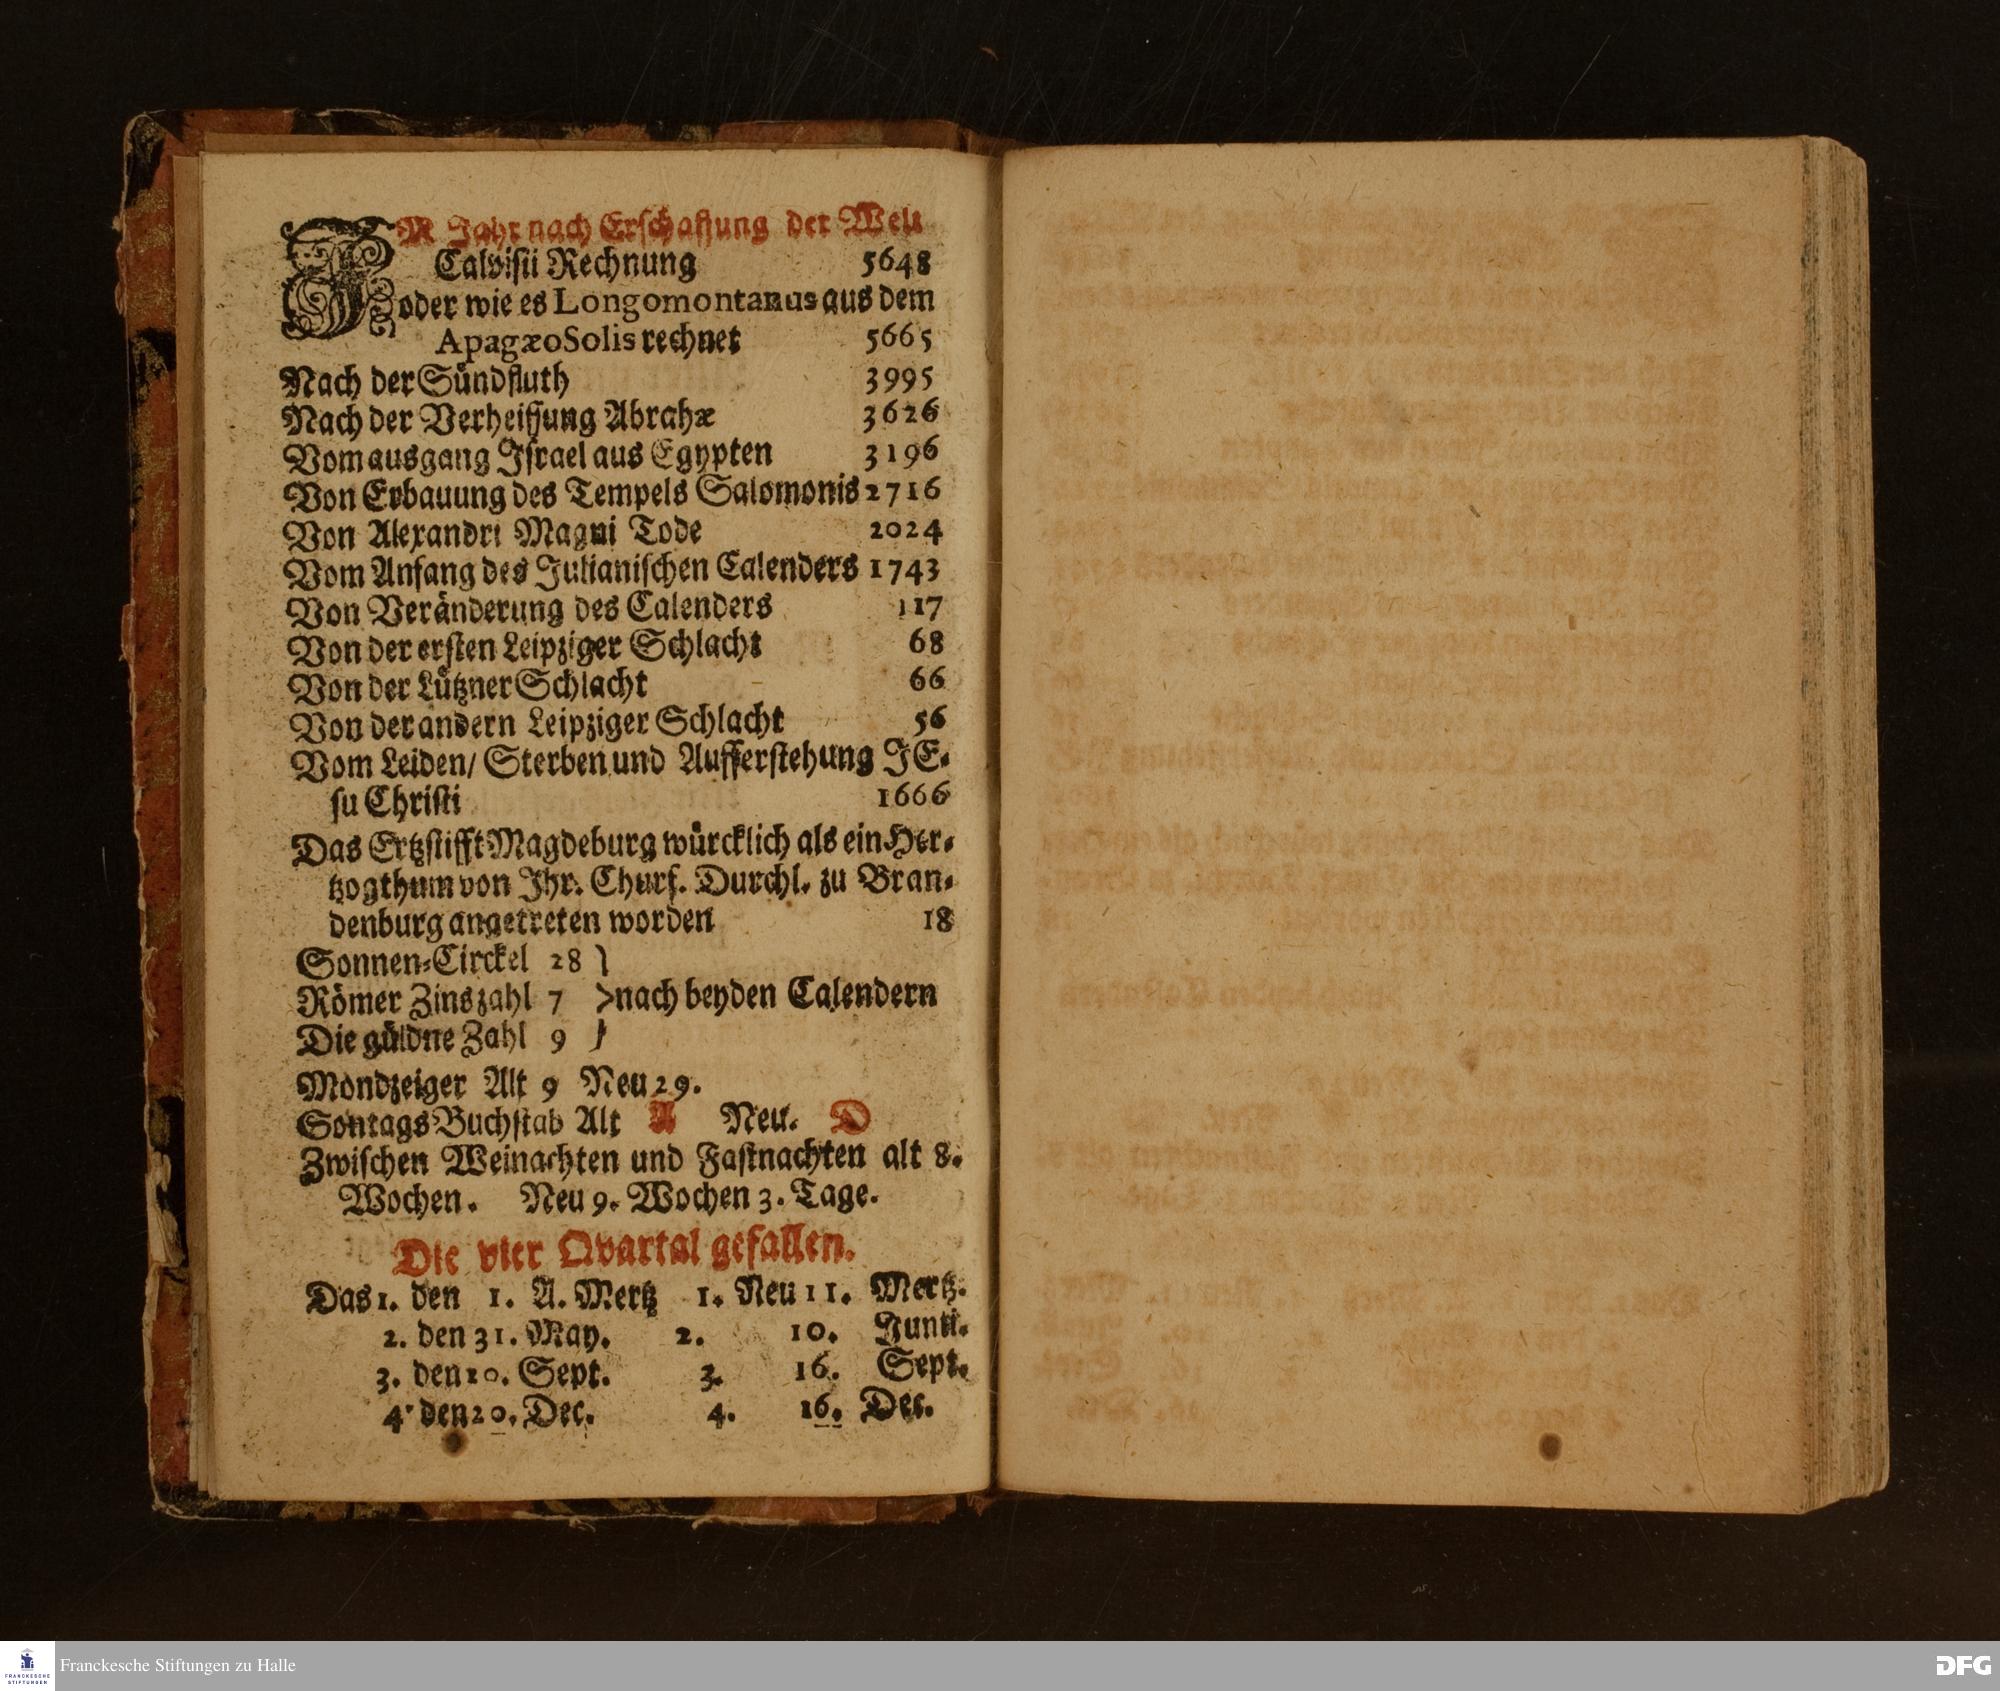 IM Jahr nach Erschaffung der Welt
Calvisii Rechnung 5648
oder wie es Longomontanus aus dem
Apagæo Solis rechnet 5665
Nach der Sündfluth 3995
Nach der Verheissung Abrahæ 3626
Vom ausgang Israel aus Egypten 3196
Von Erbauung des Tempels Salomonis 2716
Von Alexandri Magni Tode 2024
Vom Anfang des Julianischen Calenders 1743
Von Veränderung des Calenders 117
Von der ersten Leipziger Schlacht 68
Von der Lützner Schlacht 66
Von der andern Leipziger Schlacht 56
Vom Leiden/ Sterben und Aufferstehung JE-
su Christi 1666
Das Ertzstifft Magdeburg würcklich als ein Her-
tzogthum von Ihr. Churf. Durchl. zu Bran-
denburg angetreten worden 18
Sonnen-Circkel 28 }
Römer Zinszahl 7 } nach beyden Calendern
Die güldne Zahl 9 }
Mondzeiger Alt 9 Neu 29.
Sontags Buchstab Alt A Neu. D
Zwischen Weinachten und Fastnachten alt 8.
Wochen. Neu 9. Wochen 3. Tage.
Die vier Qvartal gefallen.
Das 1. den 1. A. Mertz 1. Neu 11. Mertz.
2. den 31. May. 2. 10. Junii.
3. den 20. Sept. 3. 16. Sept.
4. den 20. Dec. 4. 16. Dec.
FRANCKESCHE
STIFTUNGEN
Franckesche Stiftungen zu Halle
DFG